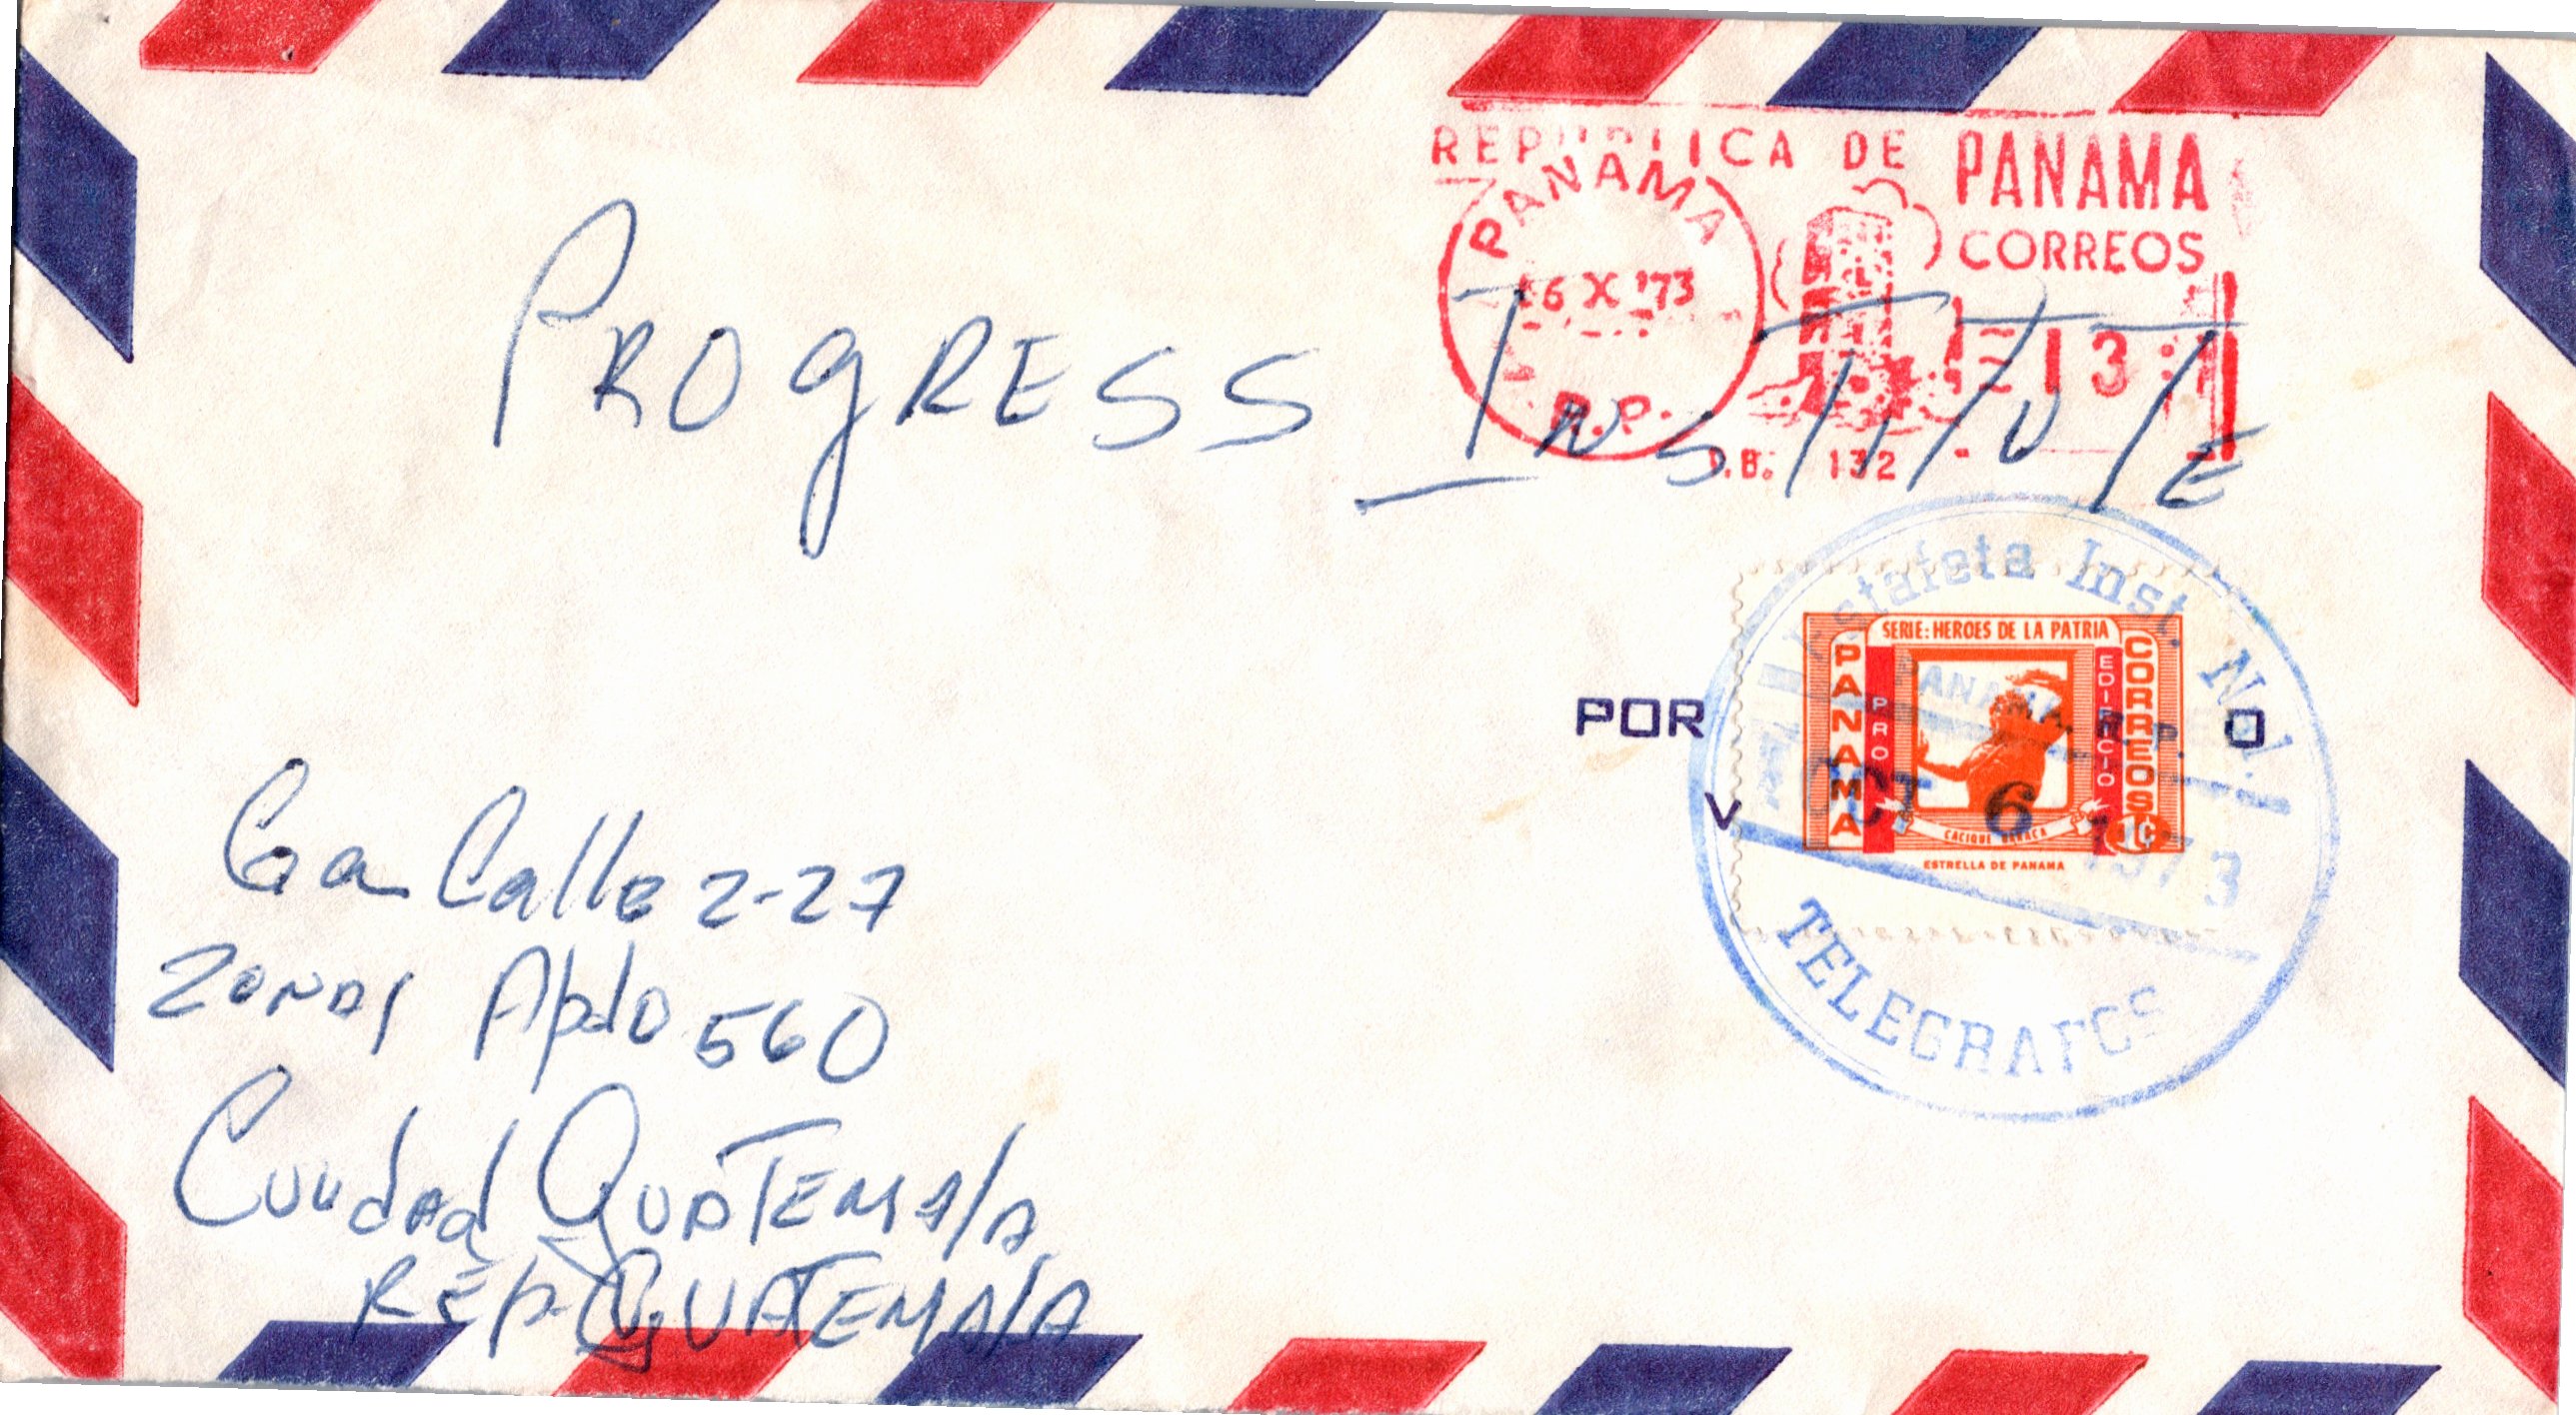 REPUBLICA DE PANAMA
CORREOS
PANAMA
6 X '73
R.P.
P.B. 132
13
PROgRESS INSTITUTE
Estafeta Inst. No.1.
PANAMA, R. P.
OCT 6 1973
TELEGRAFOS
POR
O
V
SERIE: HEROES DE LA PATRIA
PANAMA
PRO
EDIFICIO
CORREOS
1c
CACIQUE URRACA
ESTRELLA DE PANAMA
6a Calle 2-27
ZONA 1 Apdo 560
Cuudad GUATEMAlA
REp. GUATEMAlA